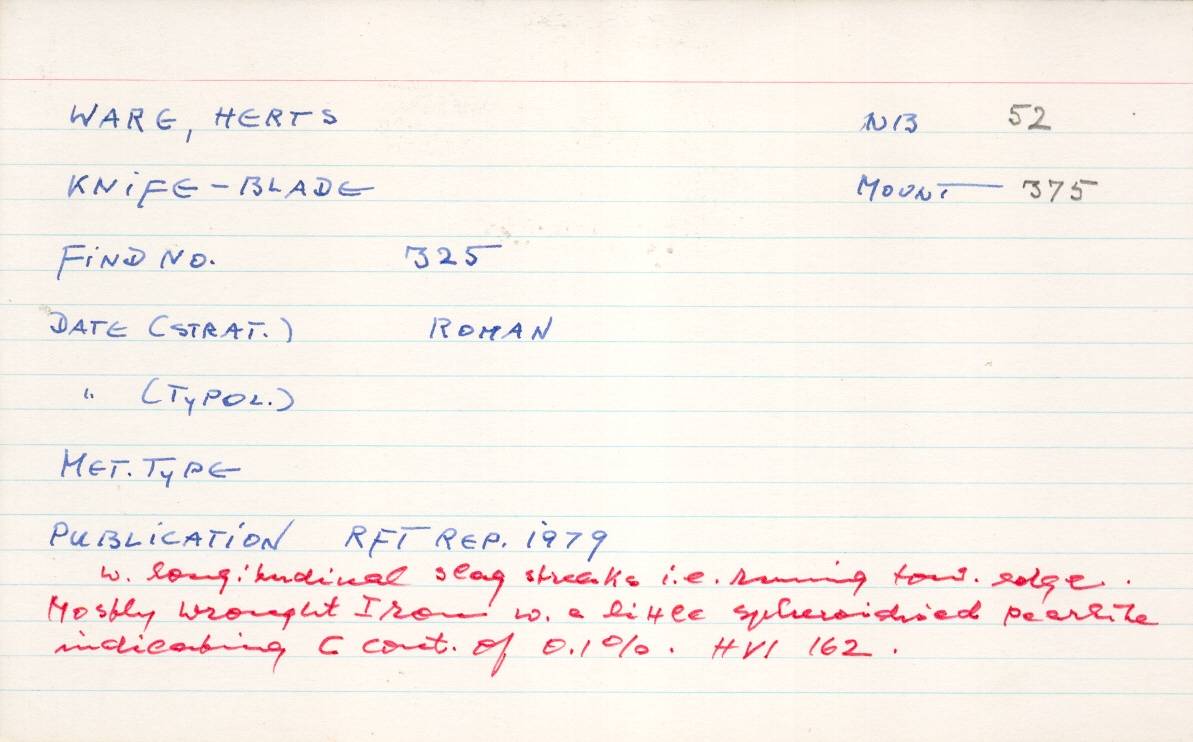 WARE, HERTS NB 52
KNiFE-BLADE MOUNT 375
FiND NO. 325
DATE (STRAT.) ROMAN
" (TyPOL.)
MET. TyPE
PUBLiCATiON RFT REP. 1979
w. longitudinal slag streaks i.e. running tow. edge.
Mostly wrought Iron w. a little spheroidised pearlite
indicating C cont. of 0.1%. HV1 162.